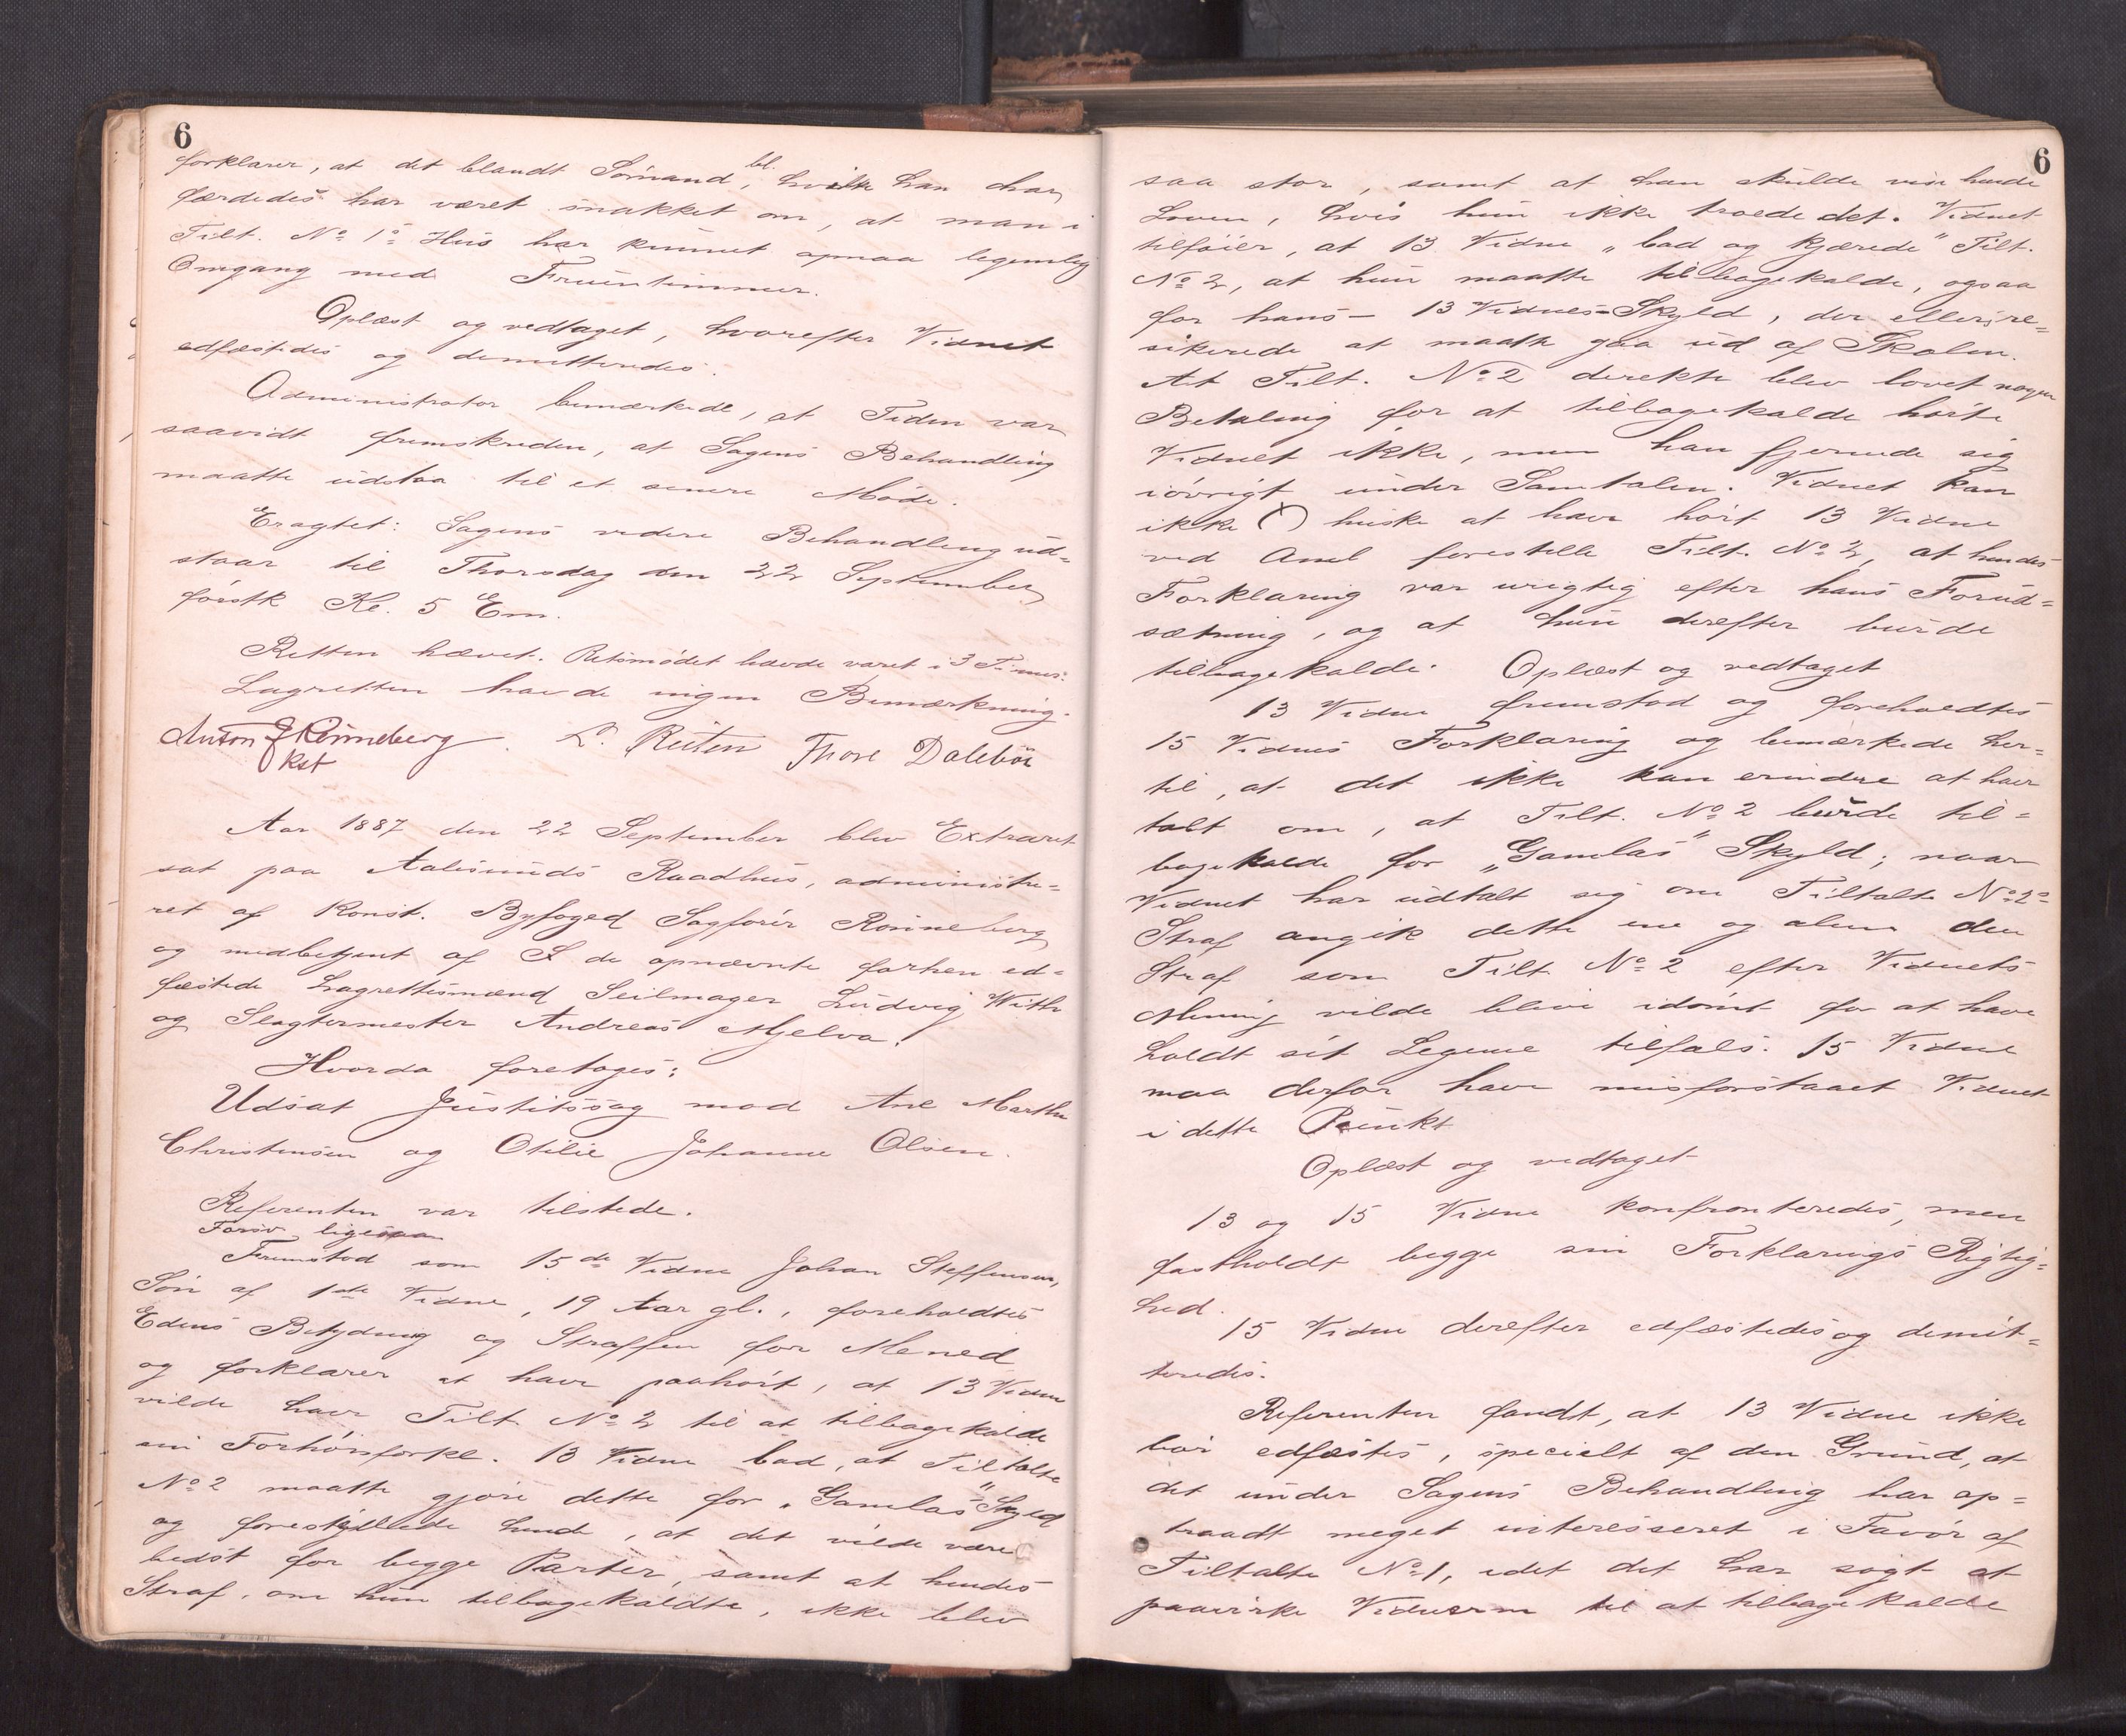 6
forklarer, at det blandt Sømænd, bl. hvilke han har
færdedes har været snakket om, at man i
Tilt. No 1s Hus har kunnet opnaa legemlig
Omgang med Fruentimmer.
Oplæst og vedtaget, hvorefter Vidnet
edfæstedes og demitteredes.
Administrator bemærkede, at Tiden var
saavidt fremskreden, at Sagens Behandling
maatte udstaa til et senere Møde.
Eragtet: Sagens videre Behandling ud-
staar til Thorsdag den 22 September
førstk Kl. 5 Em.
Retten hævet. Retsmødet havde varet i 3 Timer.
Lagretten havde ingen Bemærkning.
Anton J Rönneberg L. Reiten Thore Dalebøe
kst
Aar 1887 den 22 September blev Extraret
sat paa Aalesunds Raadhus, administre-
ret af konst. Byfoged Sagfører Rönneberg
og medbetjent af de opnævnte forhen ed-
fæstede Lagrettesmænd Seilmager Ludvig With
og Slagtermester Andreas Mjelva.
Hvorda foretoges:
Udsat Justitssag mod Ane Marthe
Christensen og Otilie Johanne Olsen.
Referenten var tilstede.
Forsv. ligesaa
Fremstod som 15de Vidne Johan Steffensen,
Søn af 1ste Vidne, 19 Aar gl., foreholdtes
Edens Betydning og Straffen for Mened
og forklarer at have paahørt, at 13 Vidne
vilde have Tilt. No 2 til at tilbagekalde
sin Forhørsforkl. 13 Vidne bad, at Tiltalte
No 2 maatte gjøre dette for „Gamlas" Skyld
og forestillede hende, at det vilde være
bedst for begge Parter, samt at hendes
Straf, om hun tilbagekaldte, ikke blev
6
saa stor, samt at han skulde vise hende
Loven, hvis hun ikke troede det. Vidnet
tilføier, at 13 Vidne „bad og kjærede" Tilt.
No 2, at hun maatte tilbagekalde, ogsaa
for hans - 13 Vidnes - Skyld, der ellers re-
sikerede at maatte gaa ud af Skolen.
At Tilt. No 2 direkte blev lovet nogen
Betaling for at tilbagekalde hørte
Vidnet ikke, men han fjernede sig
iøvrigt under Samtalen. Vidnet kan
ikke huske at have hørt 13 Vidne
ved Anel forestille Tilt. No 2, at hendes
Forklaring var urigtig efter hans Forud-
sætning, og at hun derefter burde
tilbagekalde. Oplæst og vedtaget
13 Vidne fremstod og foreholdtes
15 Vidnes Forklaring og bemærkede her-
til, at det ikke kan erindre at have
talt om, at Tilt. No 2 burde til-
bagekalde for „Gamlas" Skyld; naar
Vidnet har udtalt sig om Tiltalte No 2s
Straf angik dette ene og alene den
Straf som Tilt No 2 efter Vidnets
Mening vilde blive idømt for at have
holdt sit Legeme tilfals. 15 Vidne
maa derfor have misforstaaet Vidnet
i dette Punkt
Oplæst og vedtaget
13 og 15 Vidne konfronteredes, men
fastholdt begge sin Forklarings Rigtig-
hed.
15 Vidne derefter edfæstedes og demit-
teredes.
Referenten fandt, at 13 Vidne ikke
bør edfæstes, specielt af den Grund, at
det under Sagens Behandling har op-
traadt meget interesseret i Favør af
Tiltalte No 1, idet det har søgt at
paavirke Vidnerne til at tilbagekalde